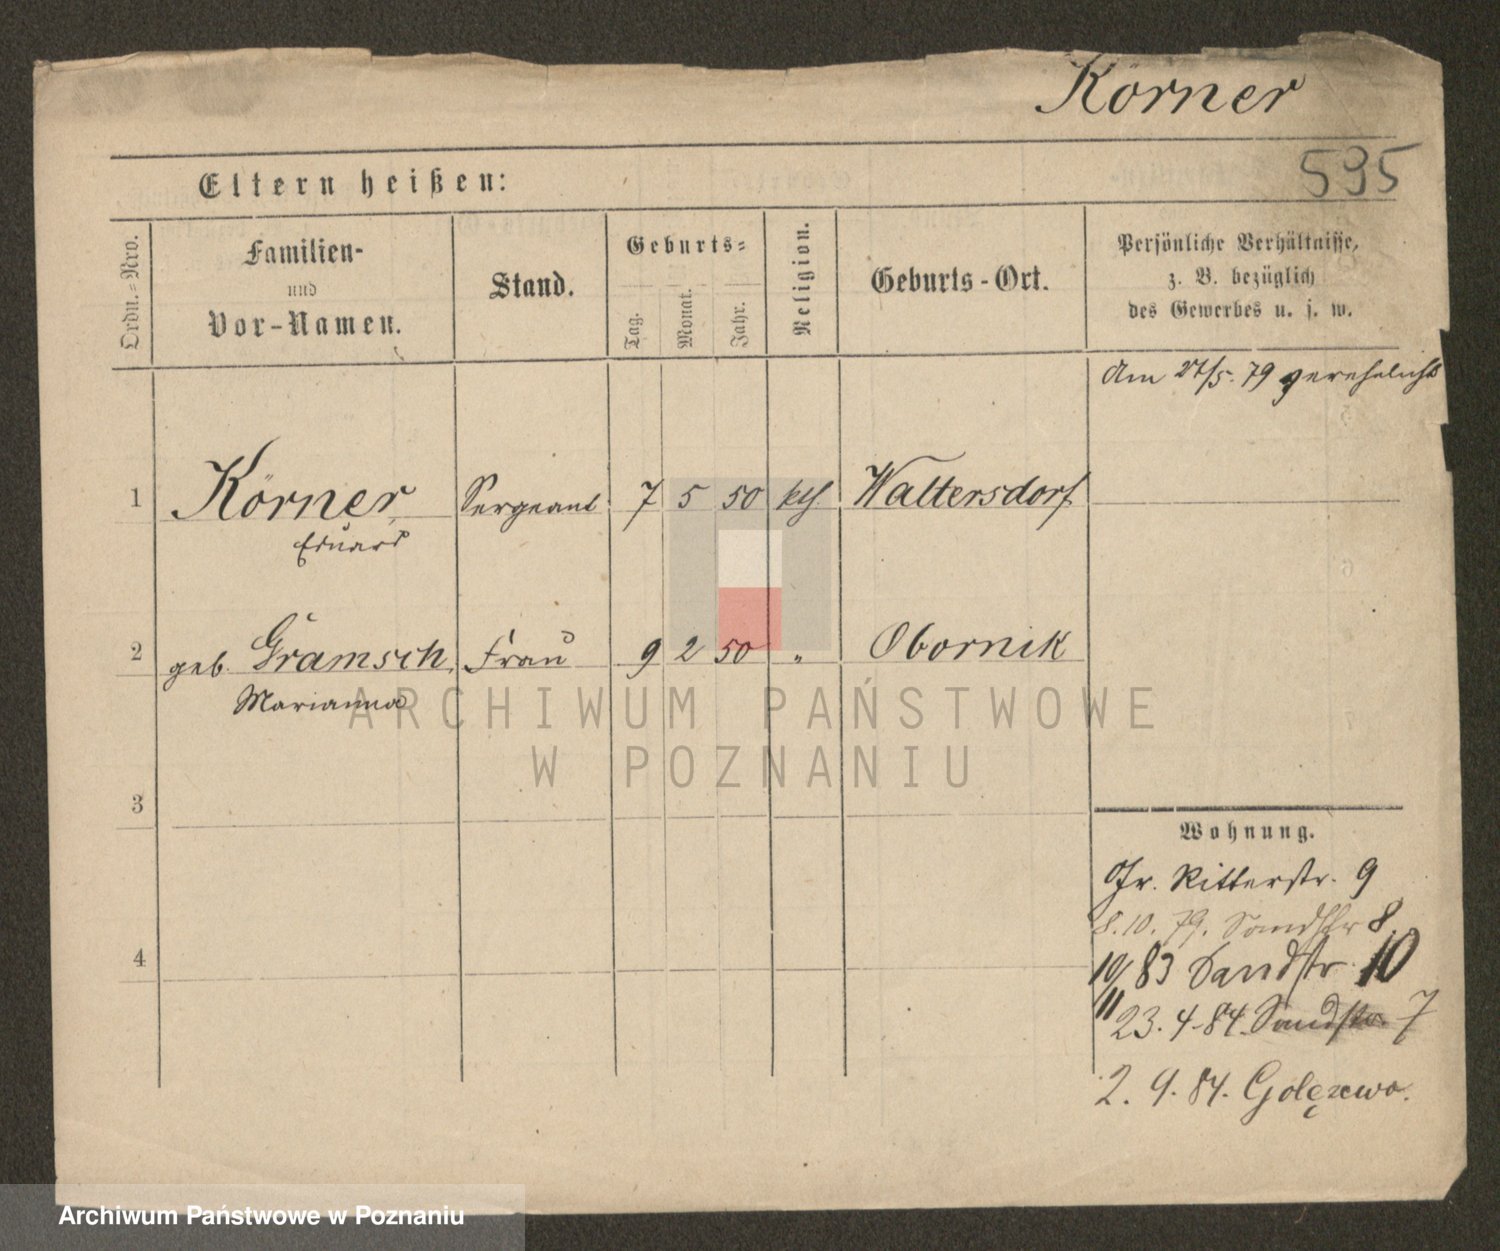 Körner
595
Eltern heißen:
Ordn.=Nro.
Familien-
und
Vor-Namen.
Stand.
Geburts=
Tag.
Monat.
Jahr.
Religion.
Geburts-Ort.
Persönliche Verhältnisse,
z. B. bezüglich
des Gewerbes u. s. w.
Am 27/5. 79 verehelicht
1 Körner Sergeant 7 5 50 kth Waltersdorf
Eduard
2 geb. Gramsch Frau 9 2 50 " Obornik
Marianna
3
4
Wohnung.
Gr. Ritterstr. 9
8. 10. 79. Sandstr 8
10/83 Sandstr. 10
23. 4. 84. Sandstr. 7
2. 9. 84. Golęzewo.
ARCHIWUM PAŃSTWOWE
W POZNANIU
Archiwum Państwowe w Poznaniu